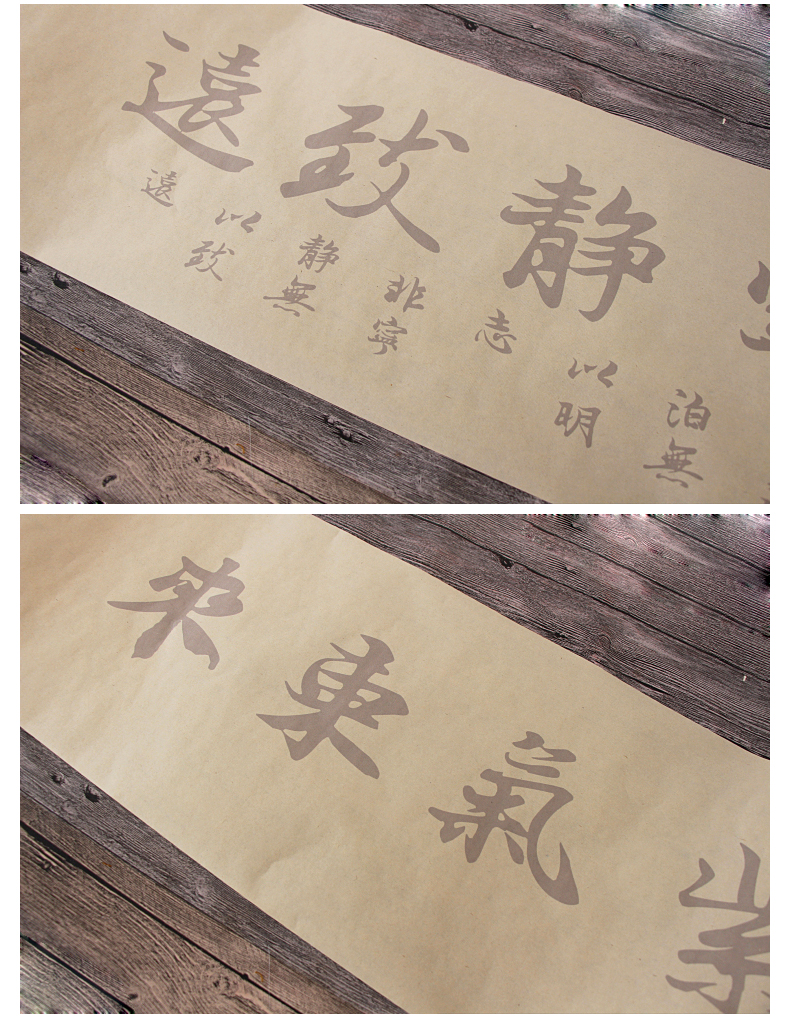 静致遠
泊無
以明
志
非寧
静無
以致
遠
紫氣東来